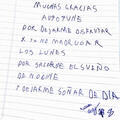 MUCHAS GRACIAS
AUTOTUNE
POR DEJARME DISFRUTAR
Y NO MADRUGAR
LOS LUNES
POR QUITARME EL SUEÑO
DE NOCHE
Y DEJARME SOÑAR DE DÍA